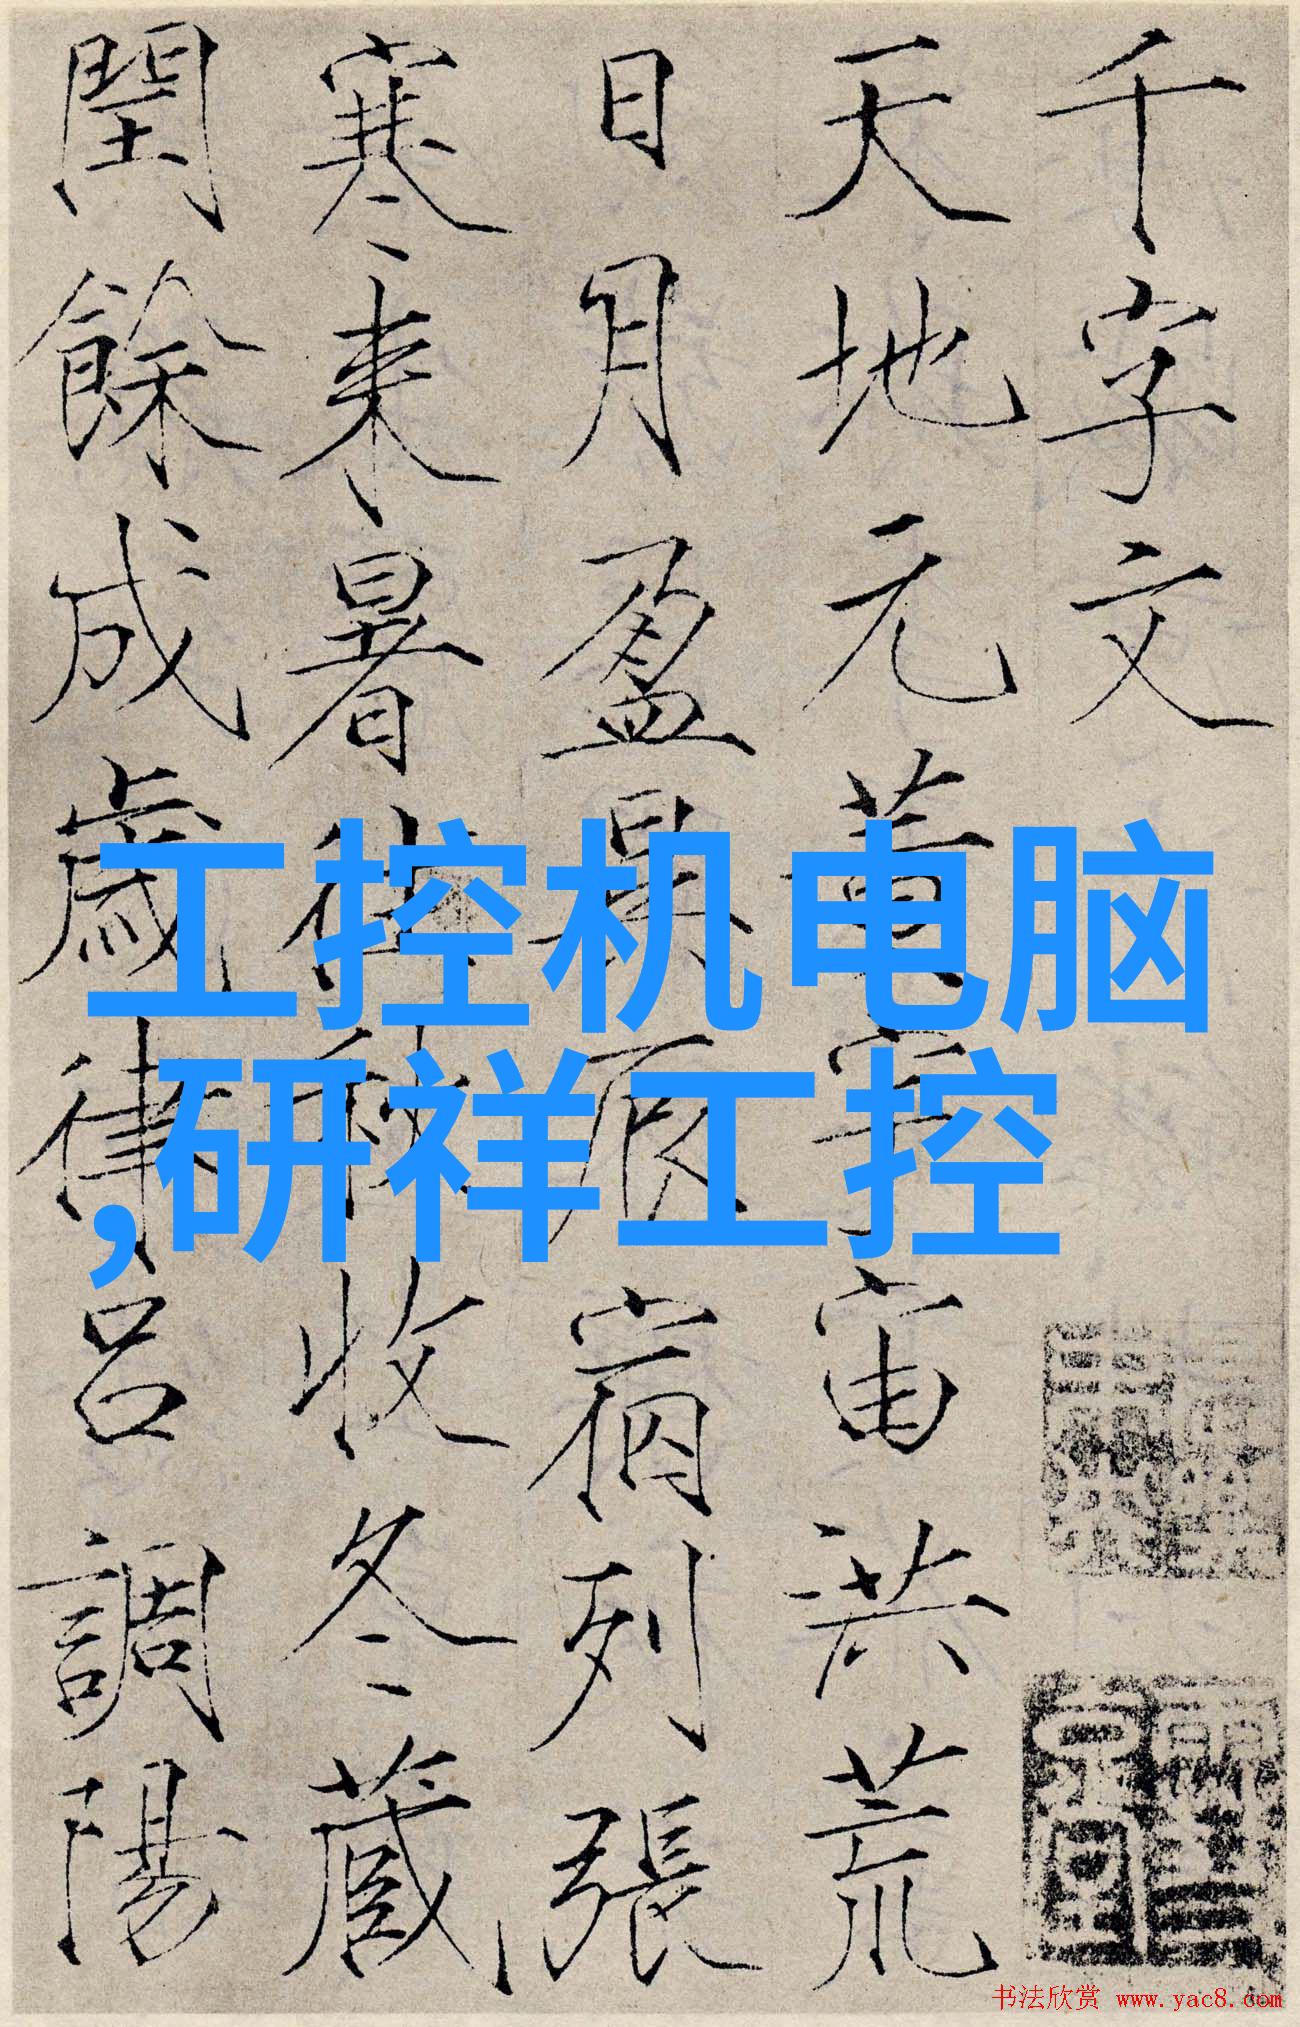 千字文
天地元黃宇宙洪荒
日月盈昃辰宿列張
寒来暑往秋收冬藏
閏餘成歲律呂調陽
工控机电脑
,研祥工控
书法欣赏 www.yac8.com